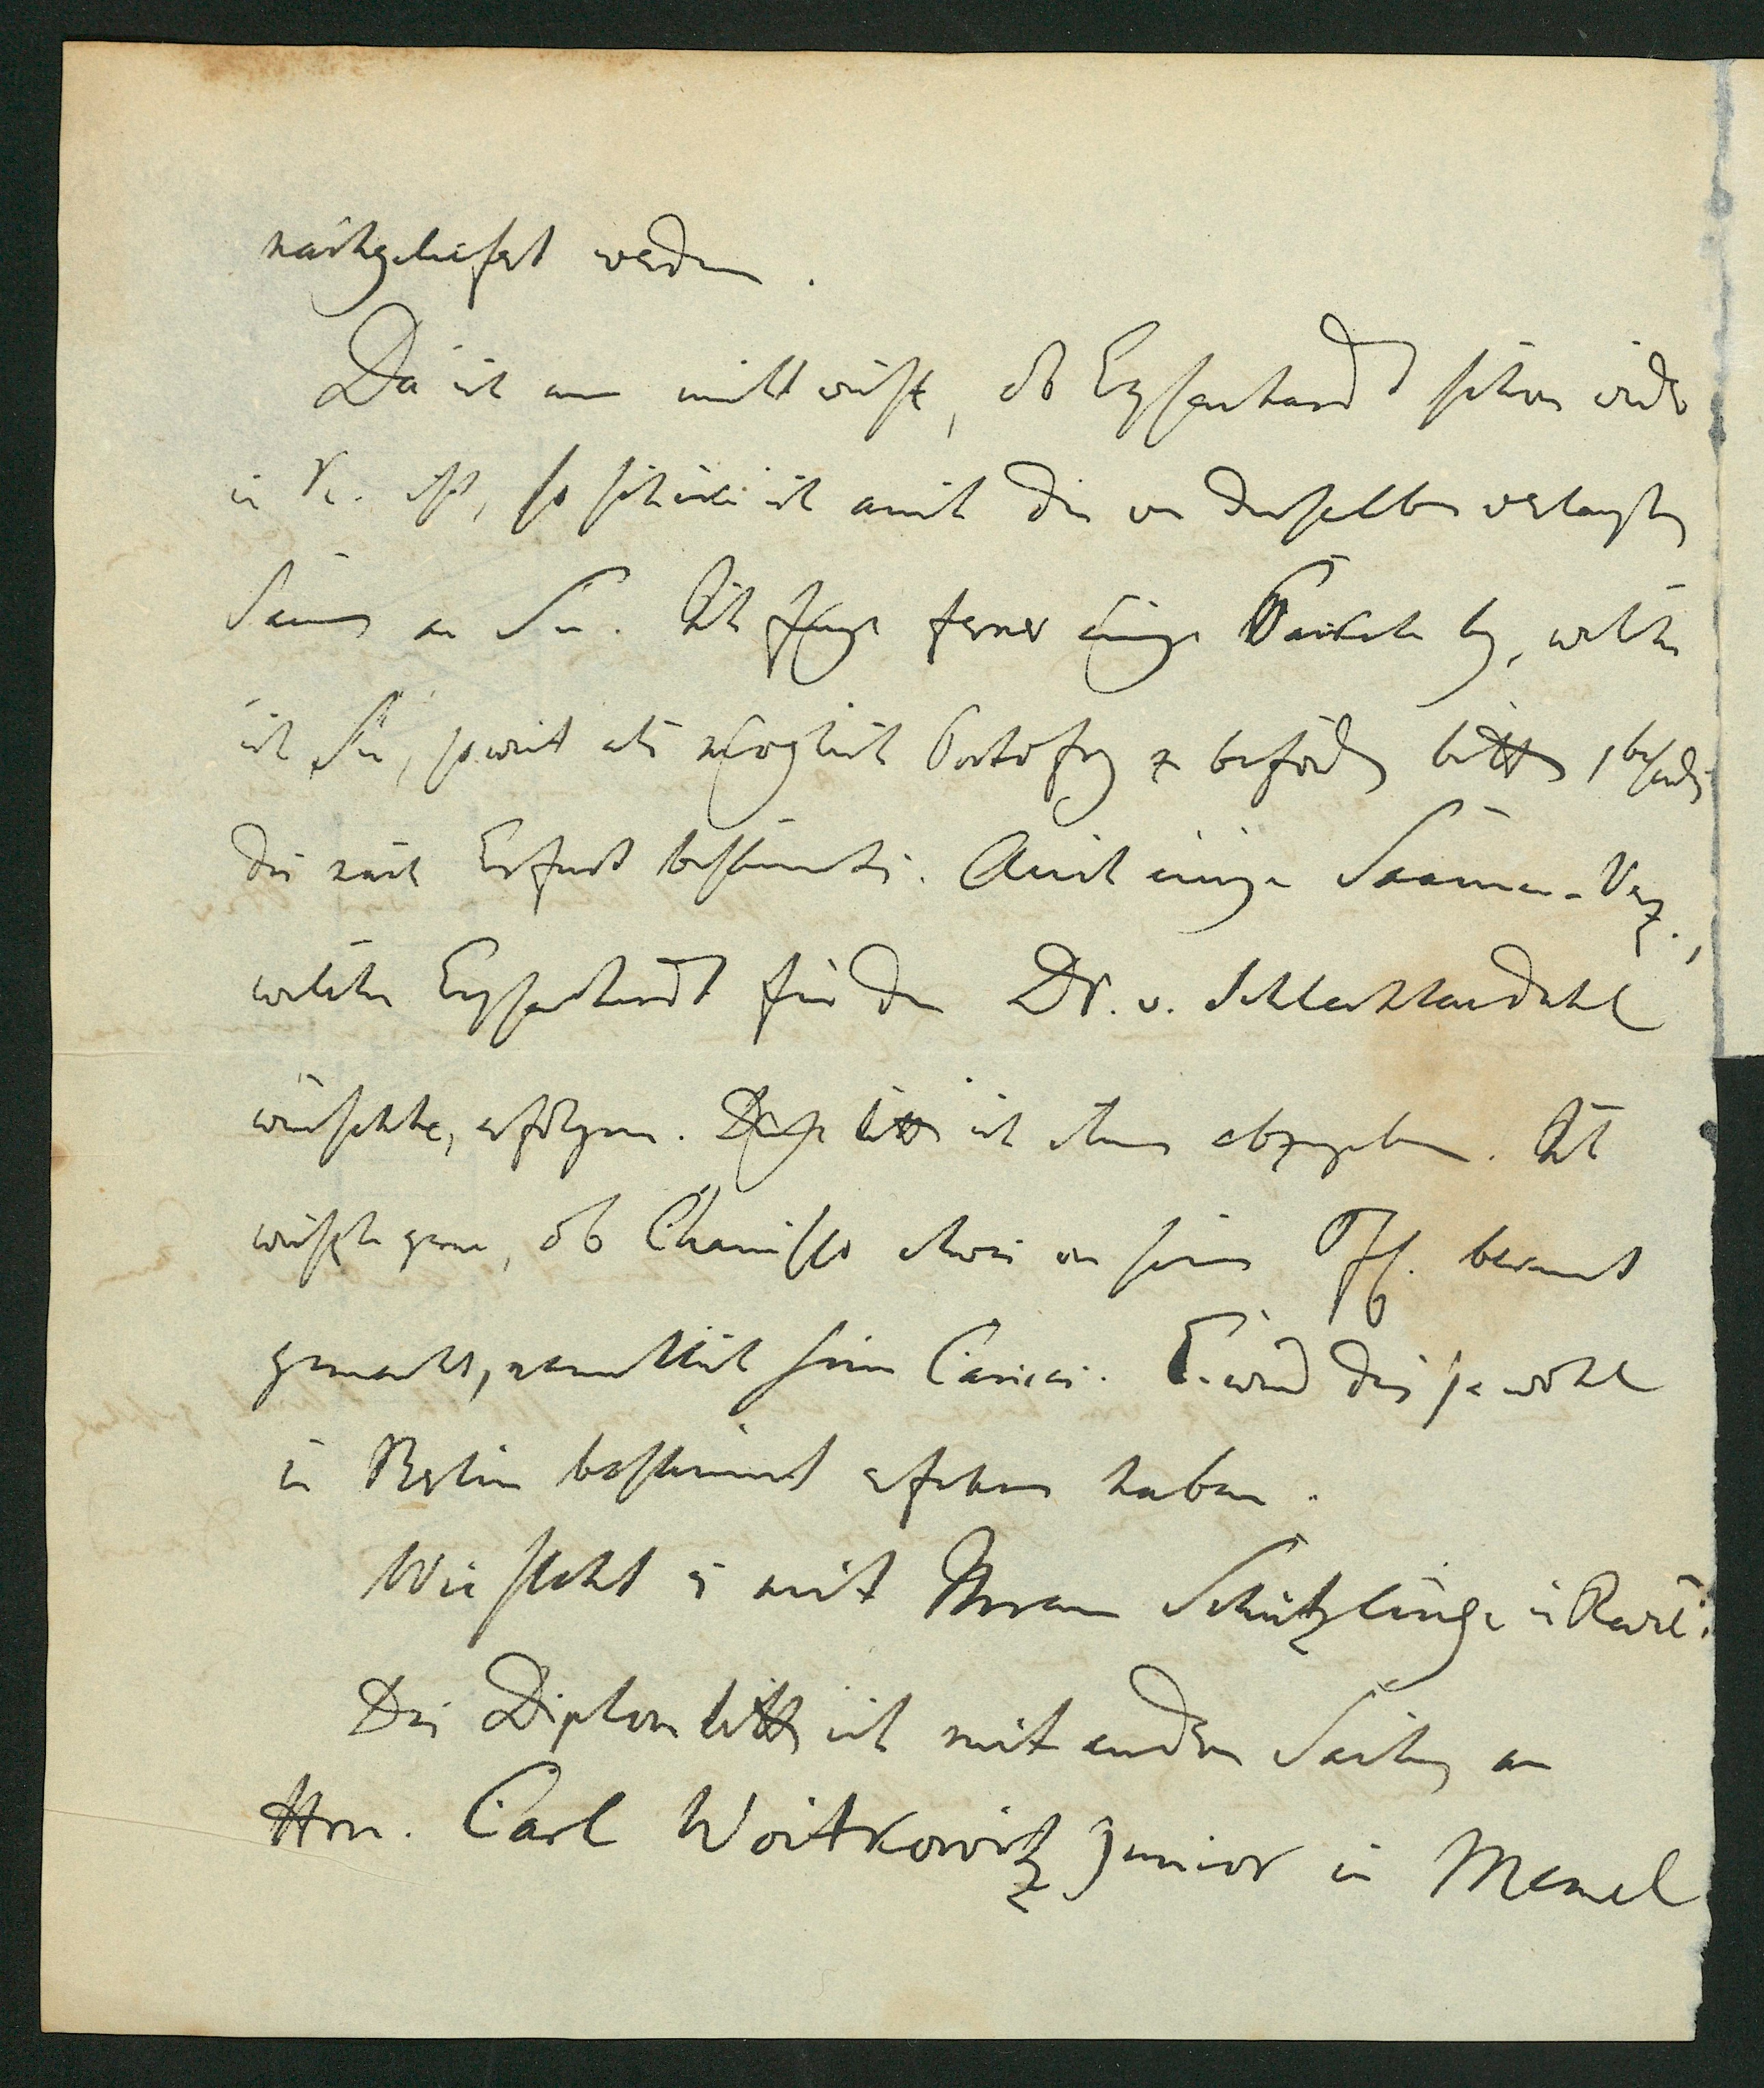 nachgeliefert werden.
Da ich nun nicht wußte, ob Eysenhardt schon wieder
in K. ist, so schicke ich auch die von demselben verlangten
Saamen an Sie. Ich füge ferner einige Packete bey, welche
ich Sie, so weit als möglich Portofrey zu befördern bitte, besonders
die nach Erfurt bestimmte. Auch einige Saamen-Verz.,
welche Eysenhardt für den Dr. v. Schlechtendahl
wünschte, erfolgen. Diese bitte ich ihm abzugeben. Ich
wüßte gerne, ob Chamisso etwas von seinen Pfl. bekannt
gemacht, namentlich seine Carices. E. wird dies ja wohl
in Berlin bestimmt erfahren haben.
Wie steht es mit Ihrem Schützlinge in
Das Diplom bitte ich mit andern Sachen an
Hrn. Carl Woitkowitz junior in Memel